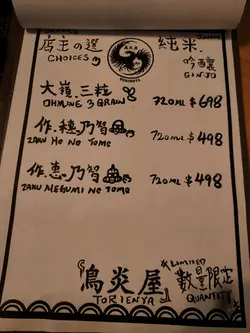 店主の選 純米.
CHOICES 吟醸
GINJO
大嶺.三粒
OHMINE 3 GRAIN 720ML $698
作.穂乃智
ZAKU HO NO TOMO 720ML $498
作.恵乃智
ZAKU MEGUMI NO TOMO 720ML $498
『鳥炎屋』
TORIENYA
*LIMITED
數量限定
QUANTITY